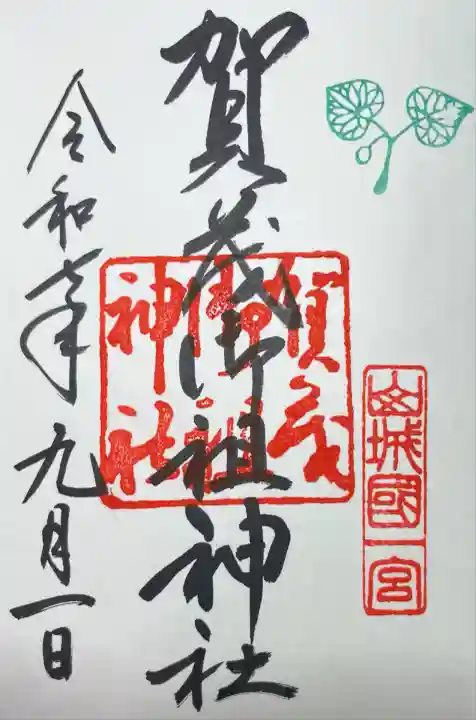 山城國一宮
賀茂御祖神社
賀茂御祖神社
令和七年九月一日